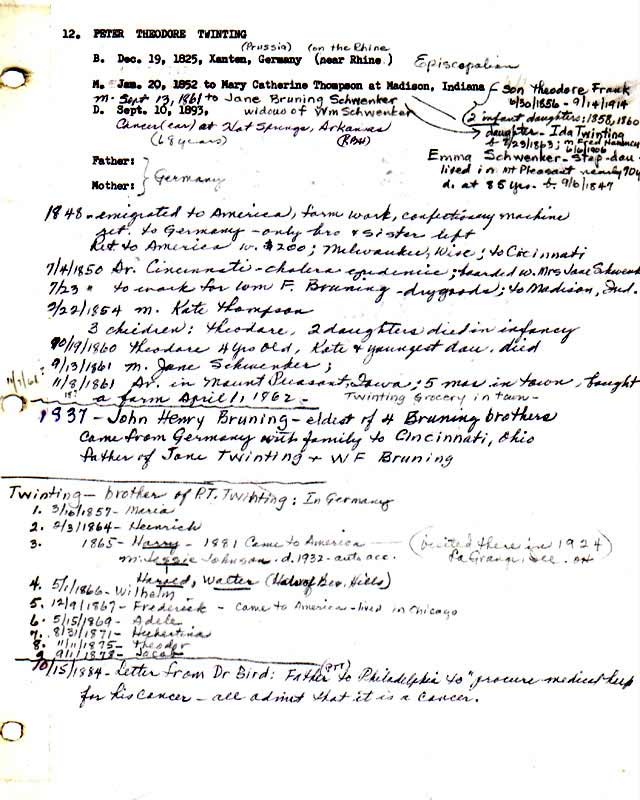 12. PETER THEODORE TWINTING
(Prussia) (on the Rhine
B. Dec. 19, 1825, Xanten, Germany (near Rhine) Episcopalian
M. Jan. 20, 1852 to Mary Catherine Thompson at Madison, Indiana
m. Sept 13, 1861 to Jane Bruning Schwenker
D. Sept. 10, 1893, widow of Wm Schwenker
Cancer (ear) at Hot Springs, Arkansas
(68 years)
Son Theodore Frank
6/30/1856 - 9/14/1914
(2 infant daughters: 1858, 1860
daughter - Ida Twinting
b 7/23/1863; m Fred
6/6/1906
Emma Schwenker - Step-dau
lived in Mt Pleasant nearly 70y
d. at 85 yrs. b. 9/6/1847
Father:
Mother:
Germany
1848 - emigrated to America, farm work, confectionary machine
ret. to Germany - only bro & sister left
Ret to America w. $200; Milwaukee, Wisc; to Cicinnati
7/4/1850 Ar. Cincinnati - cholera epidemic; boarded w. Mrs Jane Schwenk
7/23 " to work for Wm F. Bruning - drygoods; to Madison, Ind.
3/22/1854 m. Kate Thompson
3 children: Theodore, 2 daughters died in infancy
10/19/1860 Theodore 4 yrs old, Kate & youngest dau. died
9/13/1861 m. Jane Schwenker;
11/8/1861 Ar. in Mount Pleasant, Iowa; 5 mos in town, bought
a farm April 1, 1862 - Twinting Grocery in town -
1837 - John Henry Bruning - eldest of 4 Bruning brothers
Came from Germany with family to Cincinnati, Ohio
Father of Jane Twinting + W F Bruning
Twinting - brother of P.T. Twinting: In Germany
1. 3/16/1857 - Maria
2. 2/3/1864 - Heinrich
3. 1865 - Harry - 1881 Came to America (visited there in 1924)
m. Jessie Johnson. d. 1932 - auto acc. LaGrange, Ill.
Harold, Walter
4. 5/1/1866 - Wilhelm
5. 12/9/1867 - Frederick - came to America - lived in Chicago
6. 5/15/1869 - Adele
7. 8/31/1871 - Hubertina
8. 11/11/1875 - Theodor
9. 9/11/1878 - Jacob
10/15/1884 - Letter from Dr Bird: Father (PTT) to Philadelphia to "procure medical help
for his cancer - all admit that it is a cancer.